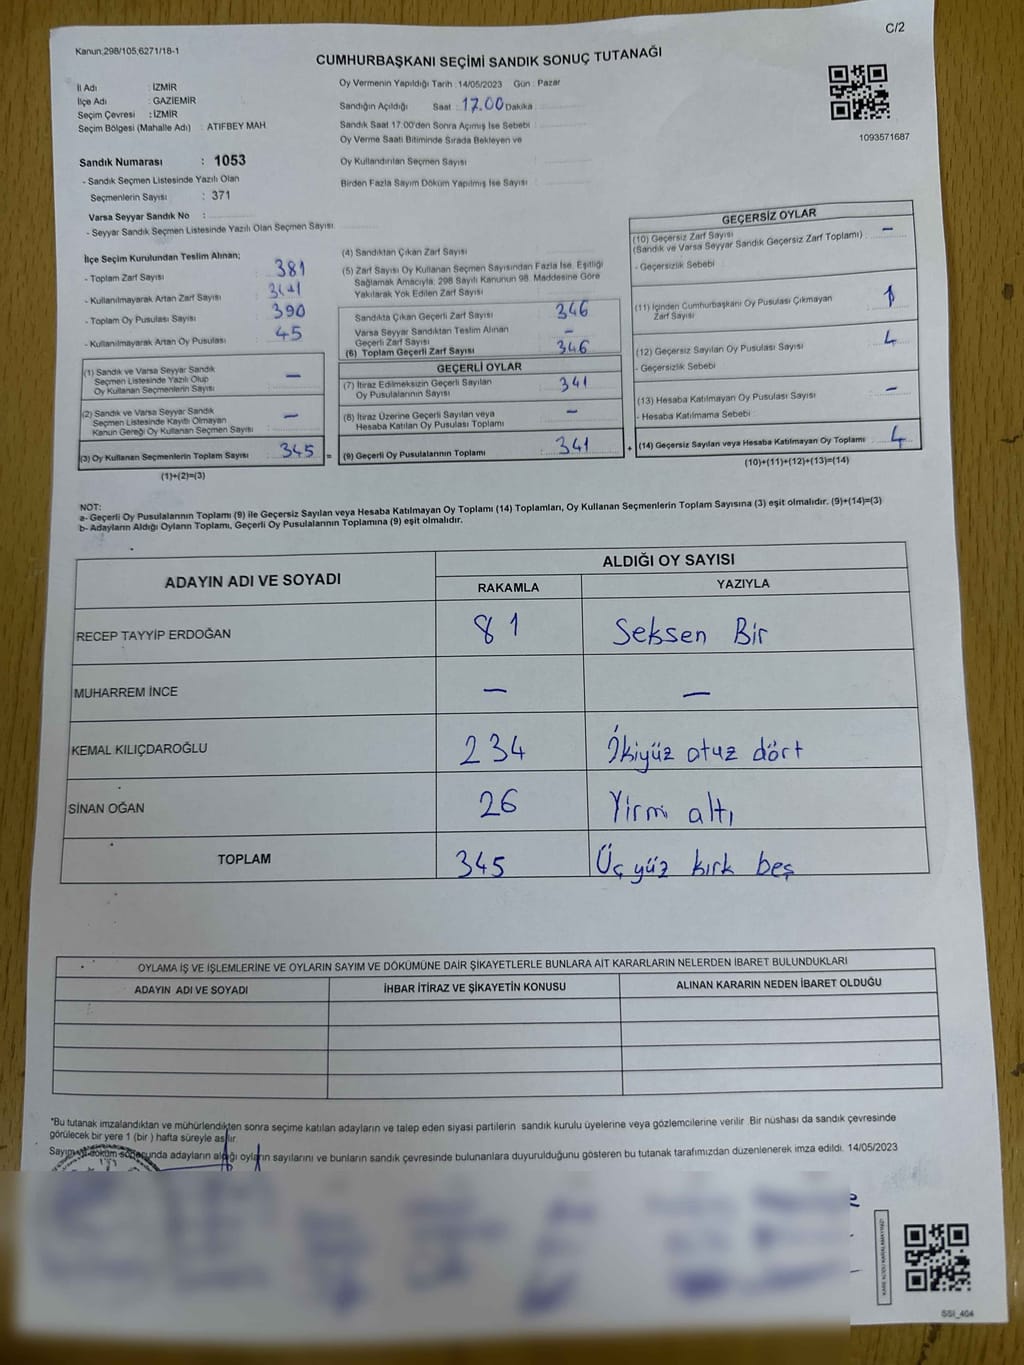 C/2
Kanun:298/105,6271/18-1
CUMHURBAŞKANI SEÇİMİ SANDIK SONUÇ TUTANAĞI
İl Adı : İZMİR
İlçe Adı : GAZİEMİR
Seçim Çevresi : İZMİR
Seçim Bölgesi (Mahalle Adı) : ATIFBEY MAH
Sandık Numarası : 1053
- Sandık Seçmen Listesinde Yazılı Olan
Seçmenlerin Sayısı : 371
Varsa Seyyar Sandık No :
- Seyyar Sandık Seçmen Listesinde Yazılı Olan Seçmen Sayısı
Oy Vermenin Yapıldığı Tarih : 14/05/2023 Gün : Pazar
Sandığın Açıldığı Saat : 17.00 Dakika :
Sandık Saat 17:00'den Sonra Açımış İse Sebebi :
Oy Verme Saati Bitiminde Sırada Bekleyen ve
Oy Kullandırılan Seçmen Sayısı
Birden Fazla Sayım Döküm Yapılmış İse Sayısı :
1093571687
İlçe Seçim Kurulundan Teslim Alınan;
- Toplam Zarf Sayısı : 381
- Kullanılmayarak Artan Zarf Sayısı :
- Toplam Oy Pusulası Sayısı : 390
- Kullanılmayarak Artan Oy Pusulası : 45
(1) Sandık ve Varsa Seyyar Sandık
Seçmen Listesinde Yazılı Olup
Oy Kullanan Seçmenlerin Sayısı : —
(2) Sandık ve Varsa Seyyar Sandık
Seçmen Listesinde Kayıtlı Olmayan
Kanun Gereği Oy Kullanan Seçmen Sayısı : —
(3) Oy Kullanan Seçmenlerin Toplam Sayısı : 345 =
(1)+(2)=(3)
(4) Sandıktan Çıkan Zarf Sayısı
(5) Zarf Sayısı Oy Kullanan Seçmen Sayısından Fazla İse, Eşitliği
Sağlamak Amacıyla; 298 Sayılı Kanunun 98. Maddesine Göre
Yakılarak Yok Edilen Zarf Sayısı
Sandıkta Çıkan Geçerli Zarf Sayısı : 346
Varsa Seyyar Sandıktan Teslim Alınan
Geçerli Zarf Sayısı : —
(6) Toplam Geçerli Zarf Sayısı : 346
GEÇERLİ OYLAR
(7) İtiraz Edilmeksizin Geçerli Sayılan
Oy Pusulalarının Sayısı : 341
(8) İtiraz Üzerine Geçerli Sayılan veya
Hesaba Katılan Oy Pusulası Toplamı : —
(9) Geçerli Oy Pusulalarının Toplamı : 341 +
GEÇERSİZ OYLAR
(10) Geçersiz Zarf Sayısı
(Sandık ve Varsa Seyyar Sandık Geçersiz Zarf Toplamı) : —
- Geçersizlik Sebebi :
(11) İçinden Cumhurbaşkanı Oy Pusulası Çıkmayan
Zarf Sayısı : 1
(12) Geçersiz Sayılan Oy Pusulası Sayısı : 4
- Geçersizlik Sebebi
(13) Hesaba Katılmayan Oy Pusulası Sayısı : —
- Hesaba Katılmama Sebebi :
(14) Geçersiz Sayılan veya Hesaba Katılmayan Oy Toplamı : 4
(10)+(11)+(12)+(13)=(14)
NOT:
a- Geçerli Oy Pusulalarının Toplamı (9) ile Geçersiz Sayılan veya Hesaba Katılmayan Oy Toplamı (14) Toplamları, Oy Kullanan Seçmenlerin Toplam Sayısına (3) eşit olmalıdır. (9)+(14)=(3)
b- Adayların Aldığı Oyların Toplamı, Geçerli Oy Pusulalarının Toplamına (9) eşit olmalıdır.
ADAYIN ADI VE SOYADI ALDIĞI OY SAYISI
RAKAMLA YAZIYLA
RECEP TAYYİP ERDOĞAN 81 Seksen Bir
MUHARREM İNCE — —
KEMAL KILIÇDAROĞLU 234 İkiyüz otuz dört
SİNAN OĞAN 26 Yirmi altı
TOPLAM 345 Üç yüz kırk beş
OYLAMA İŞ VE İŞLEMLERİNE VE OYLARIN SAYIM VE DÖKÜMÜNE DAİR ŞİKAYETLERLE BUNLARA AİT KARARLARIN NELERDEN İBARET BULUNDUKLARI
ADAYIN ADI VE SOYADI İHBAR İTİRAZ VE ŞİKAYETİN KONUSU ALINAN KARARIN NEDEN İBARET OLDUĞU
*Bu tutanak imzalandıktan ve mühürlendikten sonra seçime katılan adayların ve talep eden siyasi partilerin sandık kurulu üyelerine veya gözlemcilerine verilir. Bir nüshası da sandık çevresinde
görülecek bir yere 1 (bir) hafta süreyle asılır
Sayım ve döküm sonucunda adayların aldığı oyların sayılarını ve bunların sandık çevresinde bulunanlara duyurulduğunu gösteren bu tutanak tarafımızdan düzenlenerek imza edildi. 14/05/2023
SSI_404